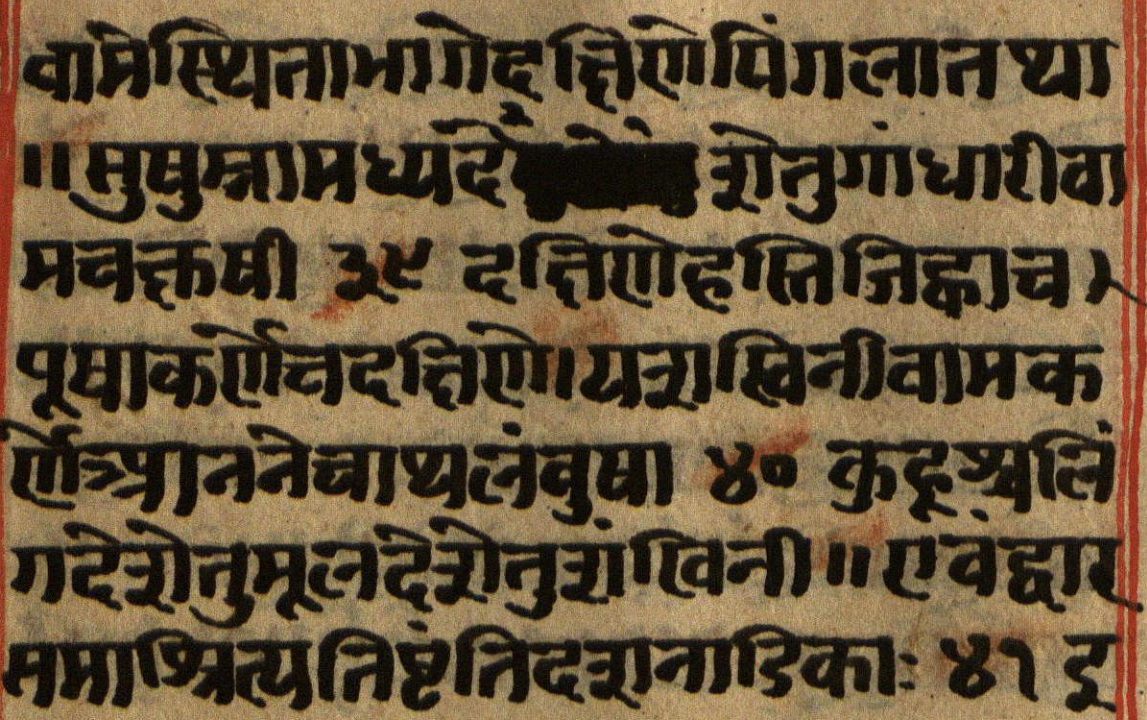 वामेस्थितानागेदक्षिणेपिंगलातथा
॥सुषुम्नामध्यदे शेतुगांधारीवा
मचक्षुषी ३९ दक्षिणेहस्तिजिह्वाच
पूषाकर्णेचदक्षिणे।यशस्विनीवामक
र्णेआननेचाथलंबुषा ४० कुहूश्चलिं
गदेशेतुमूलदेशेतुशंखिनी॥एवंद्वार
समाश्रित्यतिष्टंतिदशनाडिकाः ४१ इ